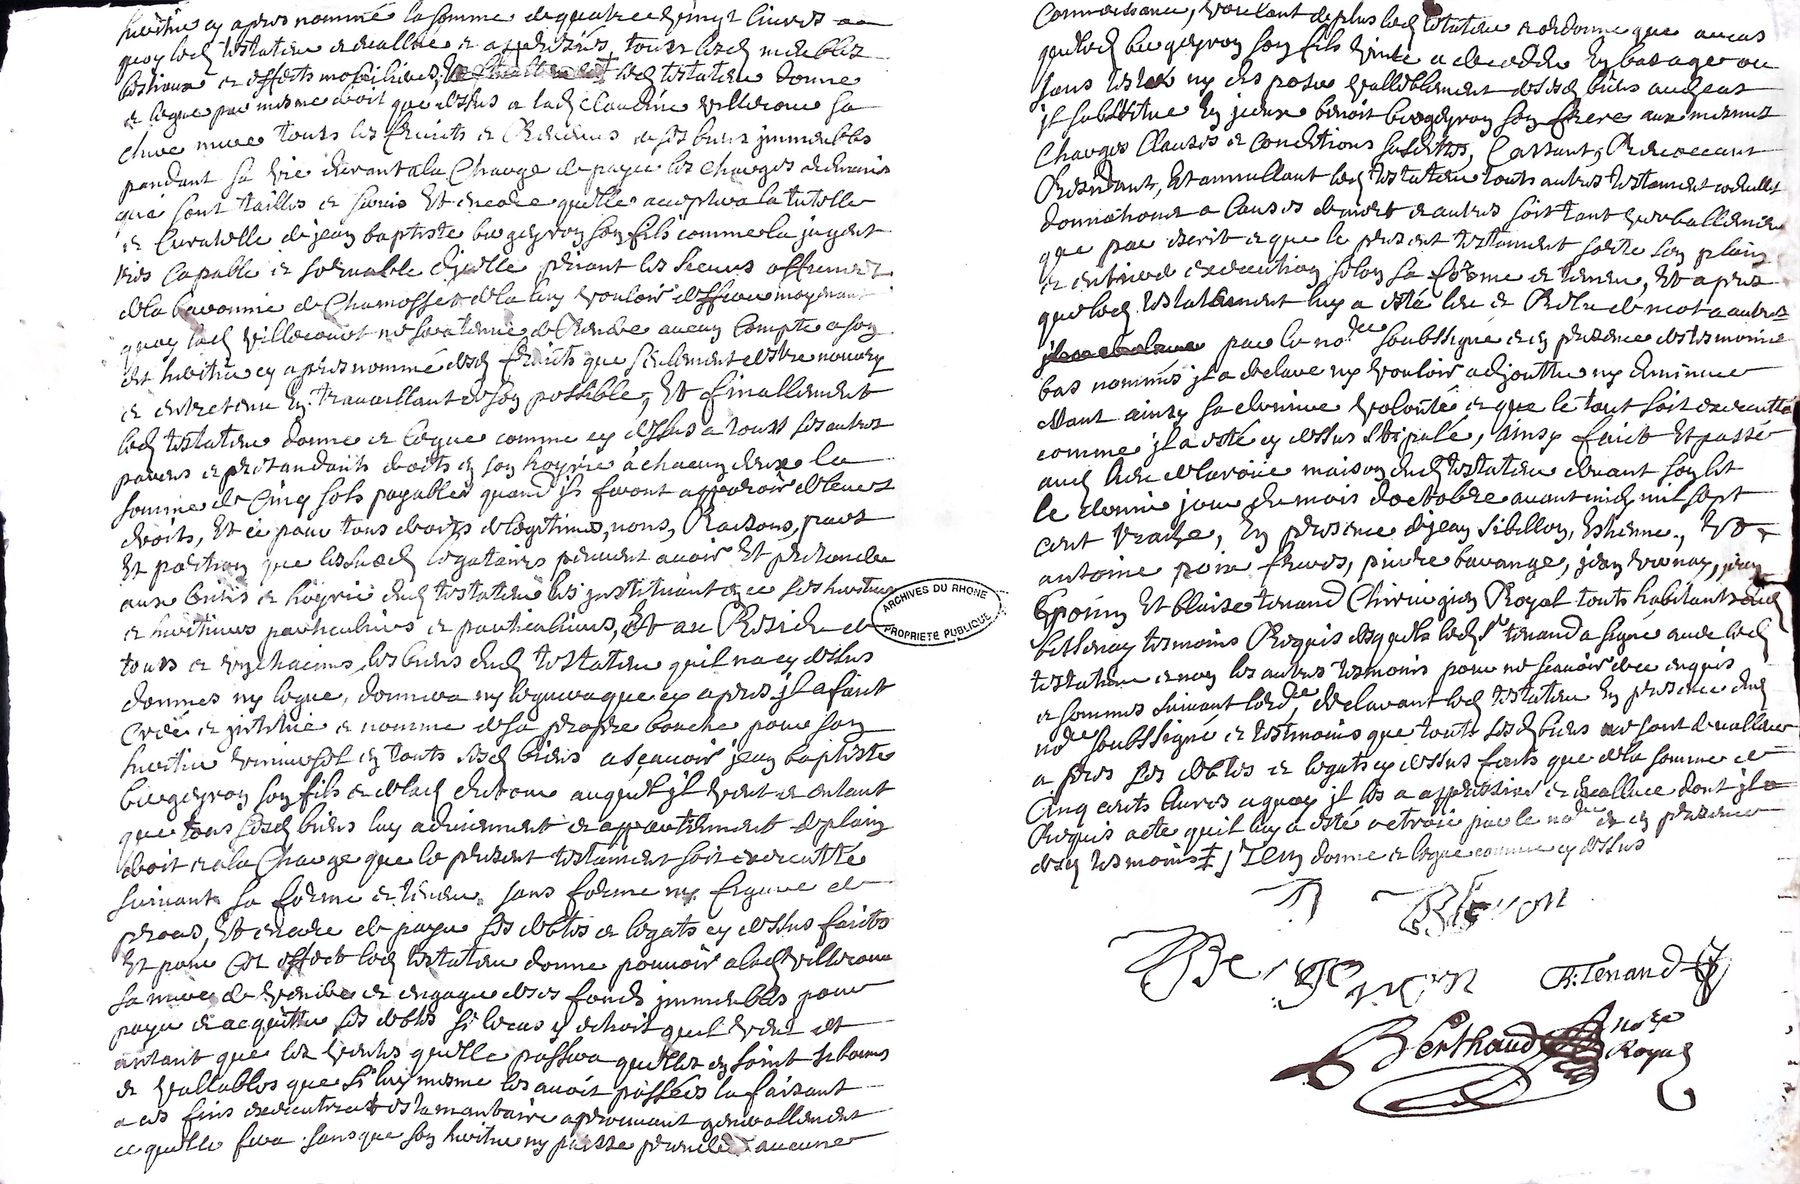 heritier cy apres nommé la somme de quatre vingt livres a
quoy led testateur a evallué et apprétiés, touts lesd meubles
bestiaux et effects mobiliaires, led testateur donne
et legue par mesme droit que dessus a lad Claudine Villecour sa
chere mere touts les fruits et Revenus de ses biens immeubles
pendant sa vie durant a la Charge de payer les charges
qui sont tailles et servis Et encore quelle acceptera la tutelle
et Curatelle de jean baptiste bergeyron son fils comme la jugent
tres Capable et solvable
de la baronnie de Chamosset de la luy vouloir deffere moyenant
quoy lad Villecourt ne sera tenue de Rendre aucun Compte a son
dit heritier cy apres nommé desd fruicts que seulement destre nourry
et entretenu En travaillant de son possible, Et finallement
led testateur donne et legue comme cy dessus a touts ses autres
parens et pretandants droits en son hoyrie a chacun deux la
somme de Cinq sols payables quand ils feront apparoir de leurs
droits, Et ce pour tous droits de legitime, noms, Raisons, parts
Et portion que lesused legataires peuvent avoir Et pretendre
aux biens et hoyrie dud testateur les instituant en ce ses heritiers
et heritieres particuliers et particulieres, Et au Residu de
touts et ungchacuns les biens dud testateur quil na cy dessus
donnes ny legue, donnera ny leguera que cy apres il a faict
Créé et institué et nomme de sa propre bouche pour son
heritier universel en touts sesd biens a sçavoir jean baptiste
bergeyron son fils et de lad auquel il veut et entant
que tous sesd biens luy adviennent et appartiennent de plain
droit et a la Charge que le present testament soit executtée
suivant sa forme et teneur, sans forme ny figure de
proces, Et encore de payer ses debtes et legats cy dessus faicts
Et pour Cet effect led testateur donne pouvoir a lad Villecour
sa mere de vendre et engager deses fonds immeubles pour
payer et acquitter ses debtes si le cas y echoit quil veut et
entant que les ventes quelle passera quelles en soint si bonnes
et vallables que si luy mesme les avoit passées la faisant
a ces fins executrice testamantaire aprouvant generallement
ce quelle fera sans que son heritier ny puisse prendre aucune
Connoissance, voulant deplus led testateur et ordonne que au cas
que led bergeyron son fils vinte a deceder En bas age ou
sans tester ny disposer vallablement desesd biens aud cas
il substitue En jceux benoit bergeyron son frere aux mesmes
Charges Clauses et Conditions susdittes, Cassant, Revocant
Resindant, Et annullant led testateur touts autres testament codicilles
donnations a Causes de mort et autres soit tant verballement
que par escrit et que le present testament sorte son plain
et entiere execution selon sa forme et teneur, Et apres
que led testalement luy a esté leu et Releu de mot a autres
par le nore soubssigné et en presence des tesmoins
bas nommés jl a declare ny vouloir adjoutter ny diminuer
Etant ainsy sa derniere volonté et que le tout soit executté
comme jl a esté cy dessus stipulé, ainsy faict Et passé
aud maison dud testateur devant son lit
le dernie jour du mois doctobre avant midy mil sept
cent treize, En presence de jean sibillon, Estienne, Et
antoine poin freres, pierre bavange, jean vernay, jean
Epoing Et blaise tenand Chirurgien Royal touts habitants dud
bessenay tesmoins Requis desquels led sr tenand a signé avec led
testateur et non les autres tesmoins pour ne sçavoir de ce enquis
et sommes suivant lordce, declarant led testateur En presence dud
nore soubssigné et tesmoins que touts sesd biens ne sont de valleur
apres ses debtes et legats cy dessus faits que de la somme de
Cinq cents livres a quoy jl les a appretiés et evallués dont jl a
Requis acte quil luy a esté octroié par le nore et en presence
desd tesmoins ‡ Jtem donne et legue comme cy dessus
Bergeyron
B: Tenand
Berthaud nore Royal
ARCHIVES DU RHONE
PROPRIETE PUBLIQUE